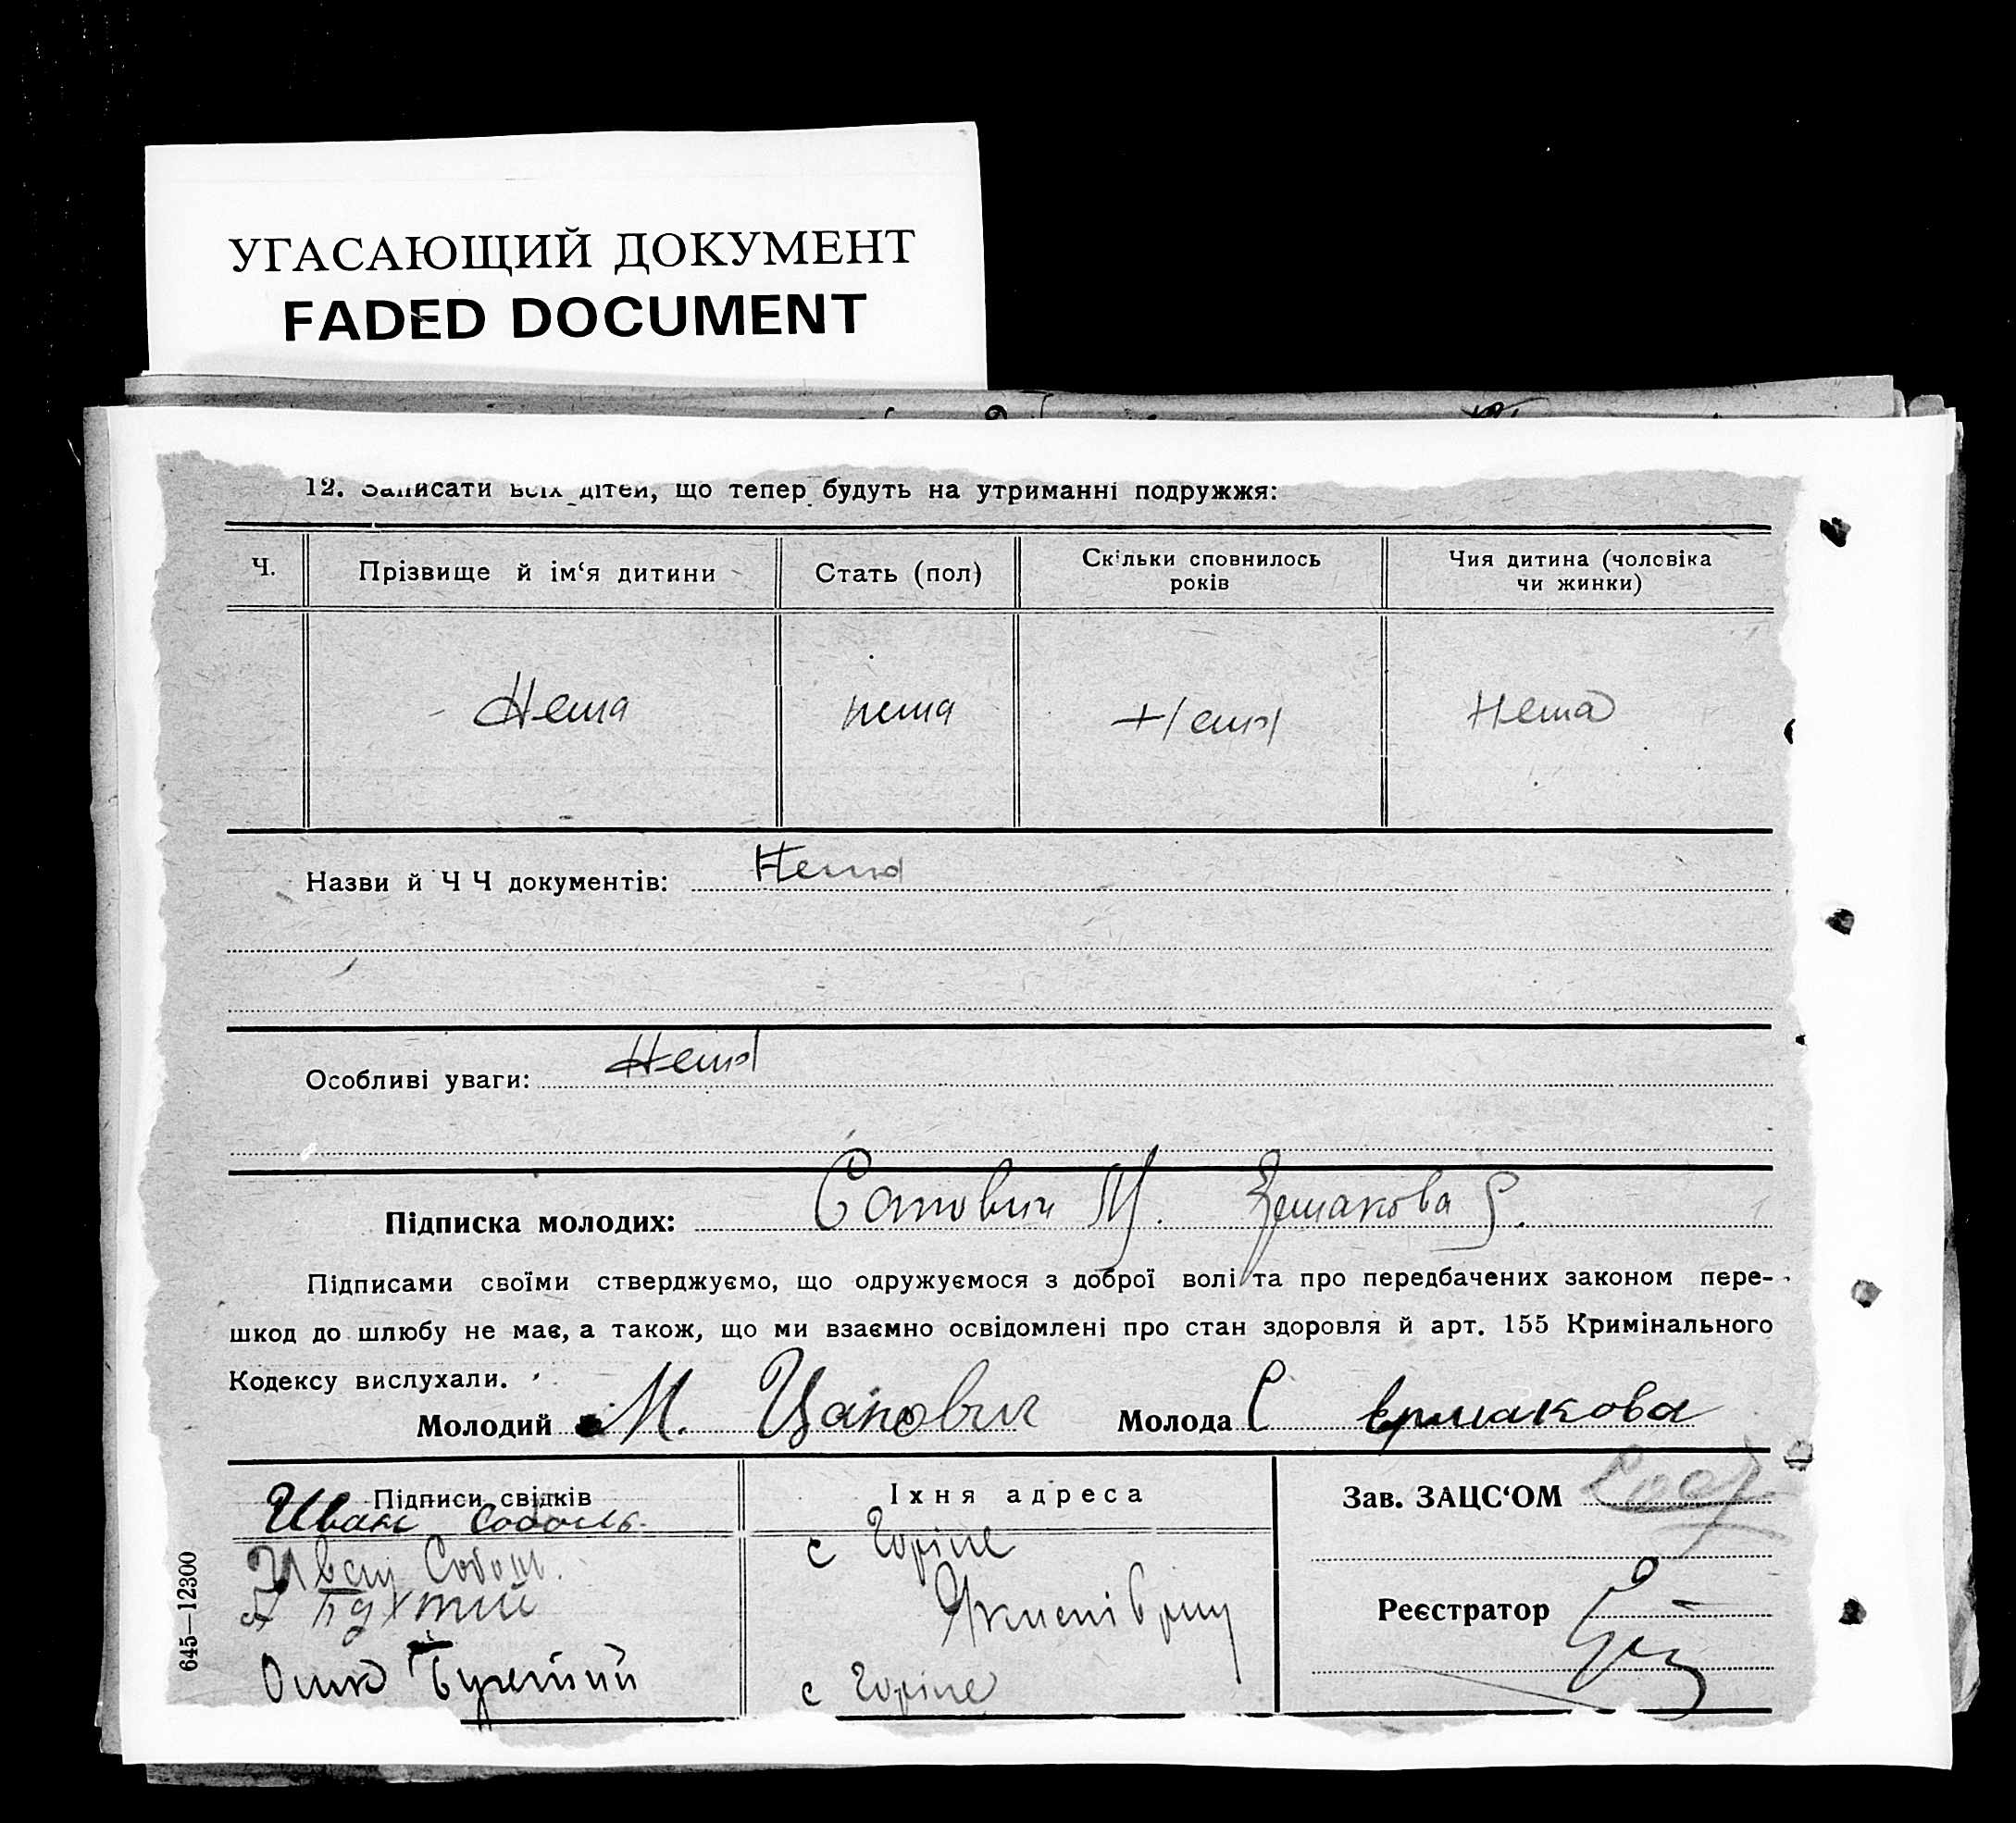 УГАСАЮЩИЙ ДОКУМЕНТ
FADED DOCUMENT
12. Записати всіх дітей, що тепер будуть на утриманні подружжя:
Ч. Прізвище й ім‘я дитини Стать (пол) Скільки сповнилось років Чия дитина (чоловіка чи жинки)
Нема нема Нема Нема
Назви й Ч Ч документів: Нема
Особливі уваги: Нема
Підписка молодих: М. Ермакова
Підписами своїми стверджуємо, що одружуємося з доброї волі та про передбачених законом пере-
шкод до шлюбу не має, а також, що ми взаємно освідомлені про стан здоровля й арт. 155 Кримінального
Кодексу вислухали.
Молодий М. Цапович Молода С Єрмакова
Підписи свідків Їхня адреса Зав. ЗАЦС‘ОМ
Иван Соболь
с Горіле
Иван Соболь
Реєстратор
с Горіле
645—12300